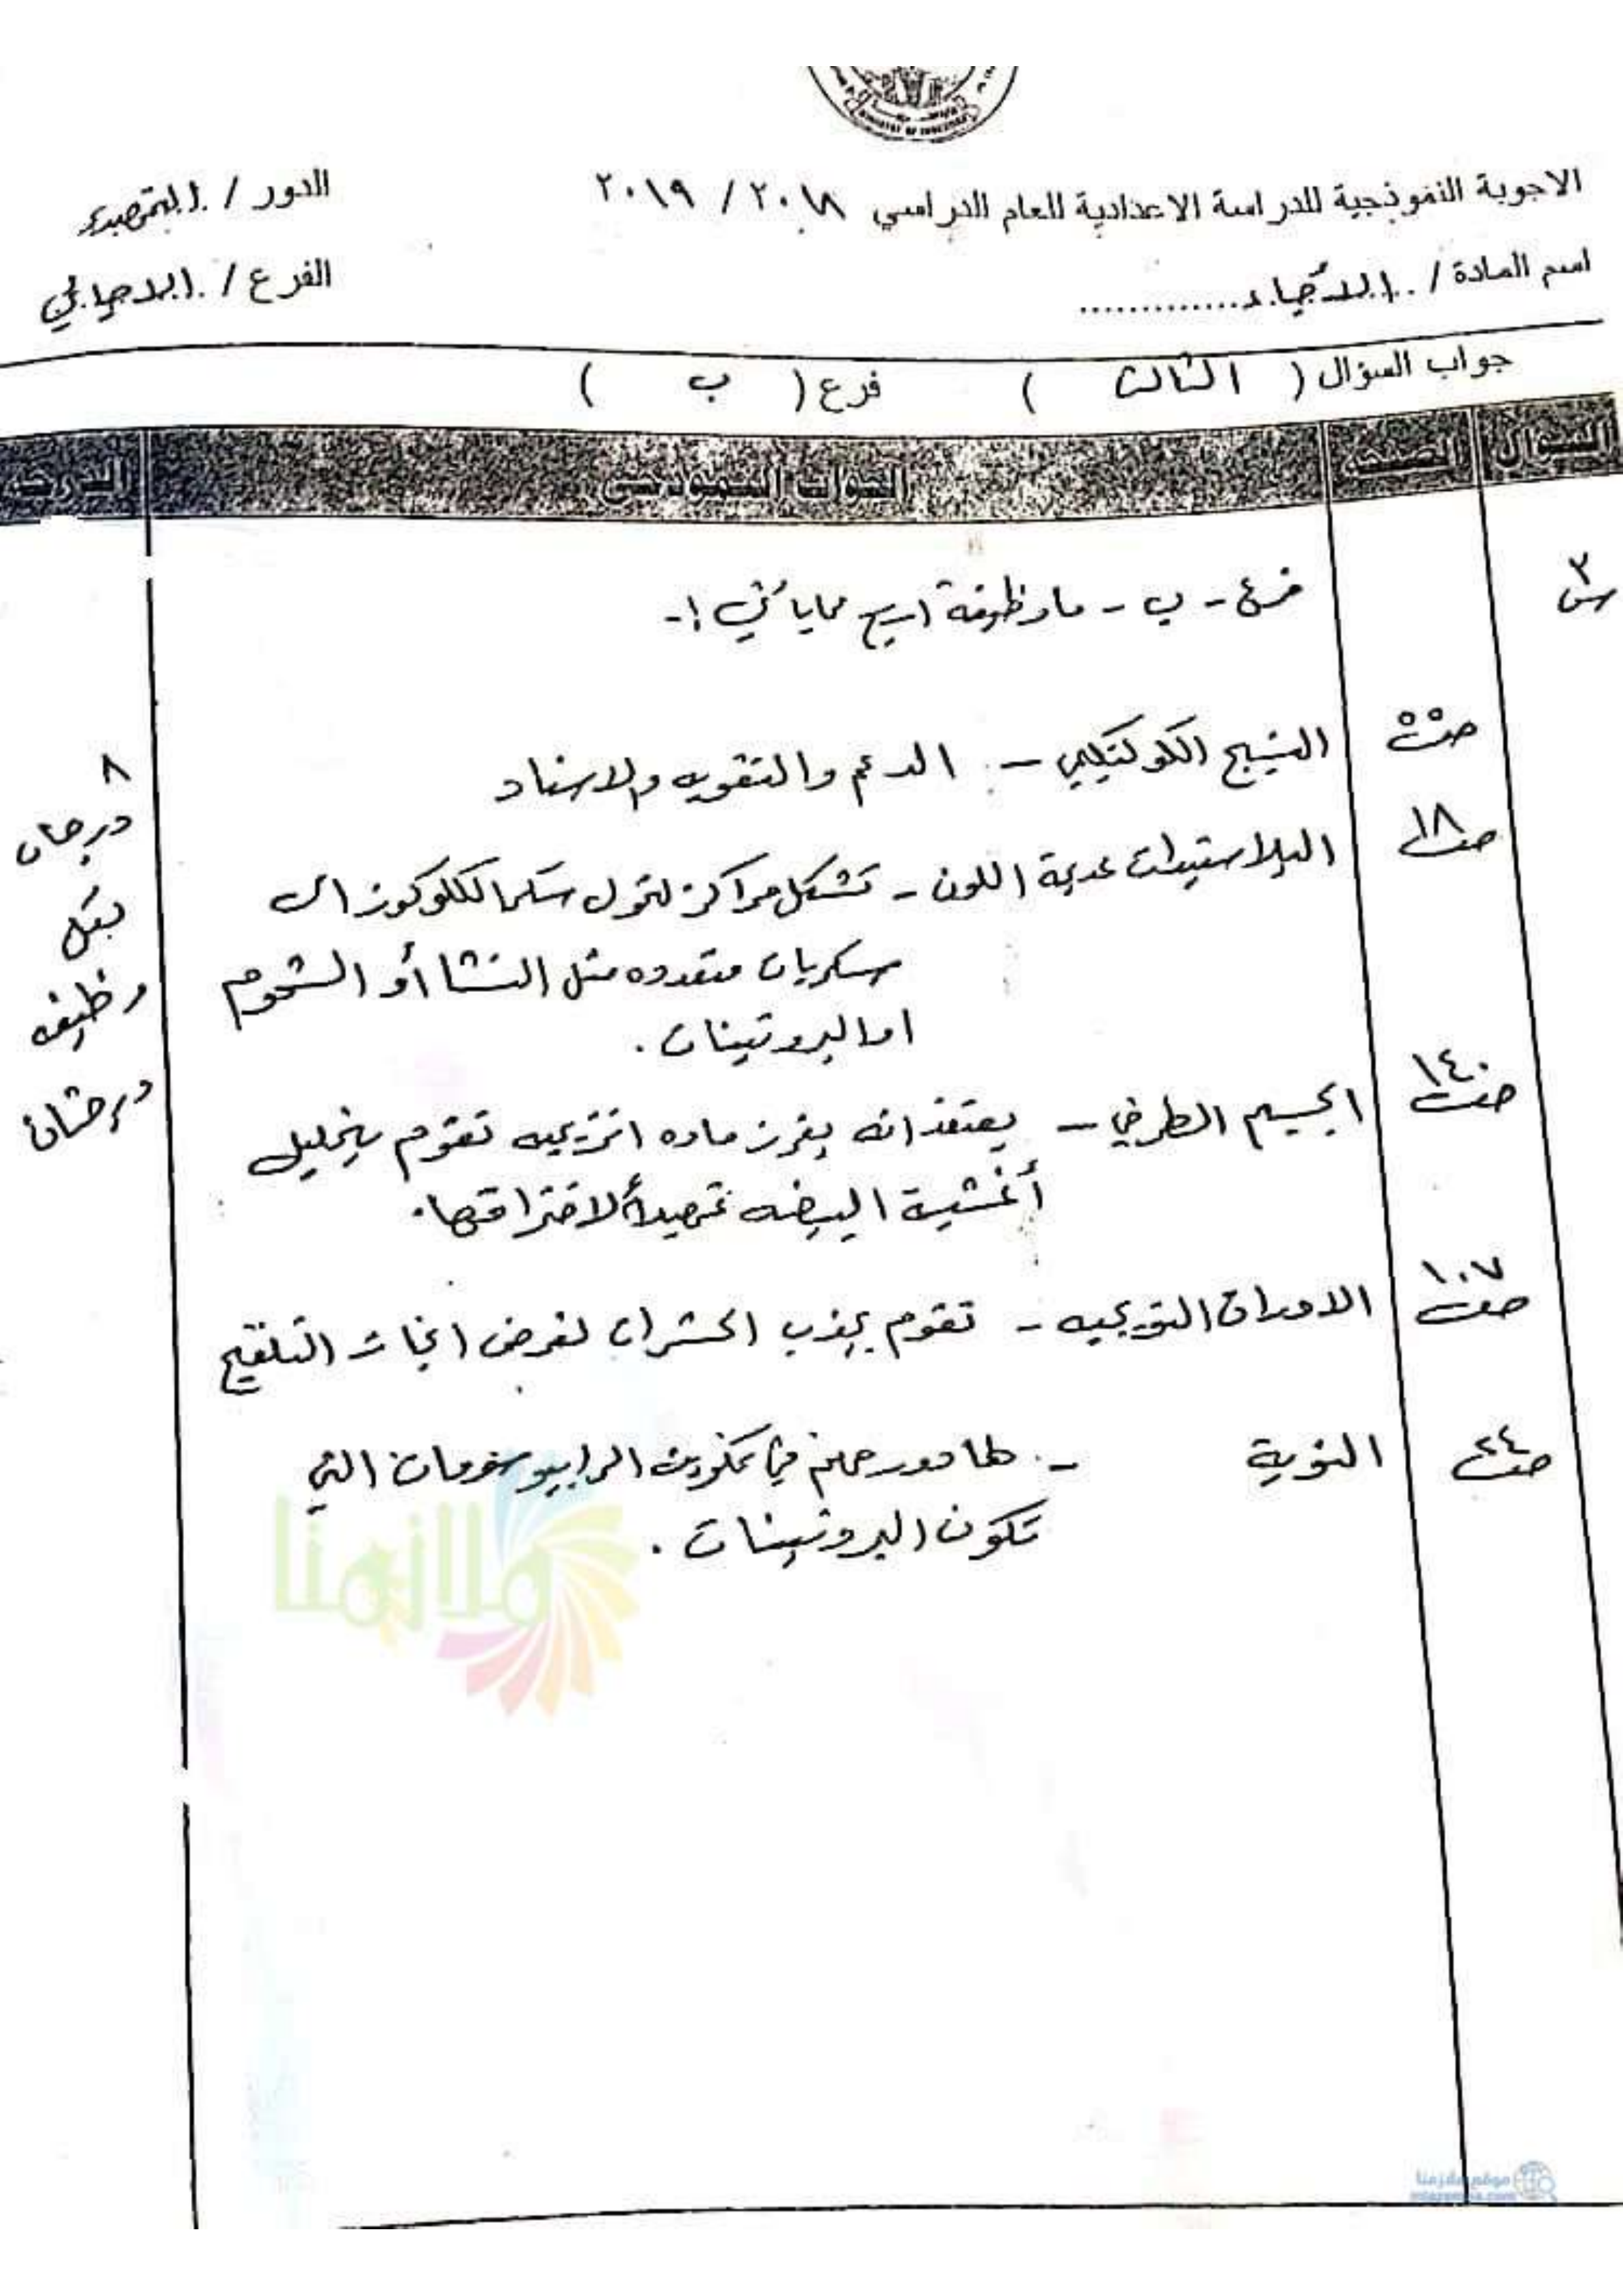 الاجوبة النموذجية للدراسة الاعدادية للعام الدراسي ٢٠١٨ / ٢٠١٩
الدور / التمهيدي
اسم المادة / الاحياء
الفرع / الاحيائي
جواب السؤال ( الثالث ) فرع ( ب )
السؤال الصفحة الجواب النموذجي الدرجة
س٣ فرع - ب - ما وظيفة اربع مما يأتي :-
ص٥٥ النسيج الكولنكيمي - الدعم والتقويه والاسناد
٨ درجات
ص١٨ البلاستيدات عديمة اللون - تشكل مراكز لتحول سكر الكلوكوز الى
لكل
سكريات متعدده مثل النشا أو الشحوم
وظيفه
او البروتينات .
درجتان
ص١٤٠ الجسيم الطرفي - يعتقد انه يفرز ماده انزيميه تقوم بتحليل
أغشية البيضه تمهيداً لاختراقها .
ص١٠٧ الاوراق التويجيه - تقوم بجذب الحشرات لغرض انجاز التلقيح
ص٢٤ النوية - لها دور مهم في تكوين الرايبوسومات التي
تكون البروتينات .
ملازمنا
موقع ملازمنا
mlazemna.com